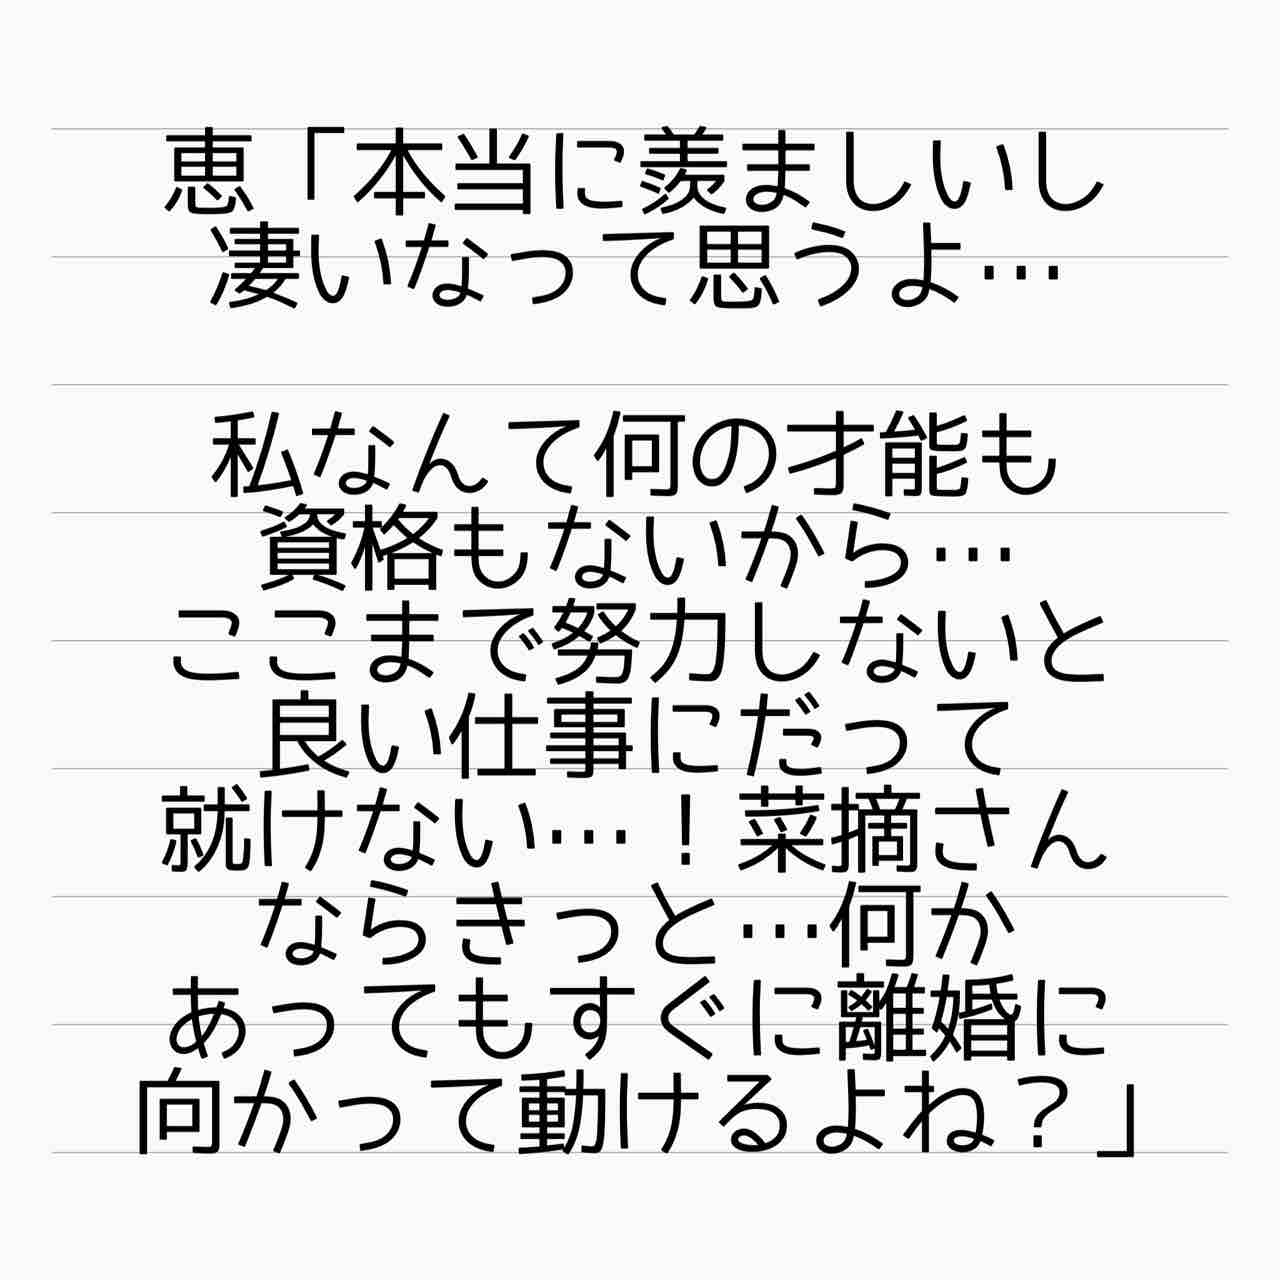 恵「本当に羨ましいし
凄いなって思うよ…
私なんて何の才能も
資格もないから…
ここまで努力しないと
良い仕事にだって
就けない…！菜摘さん
ならきっと…何か
あってもすぐに離婚に
向かって動けるよね？」